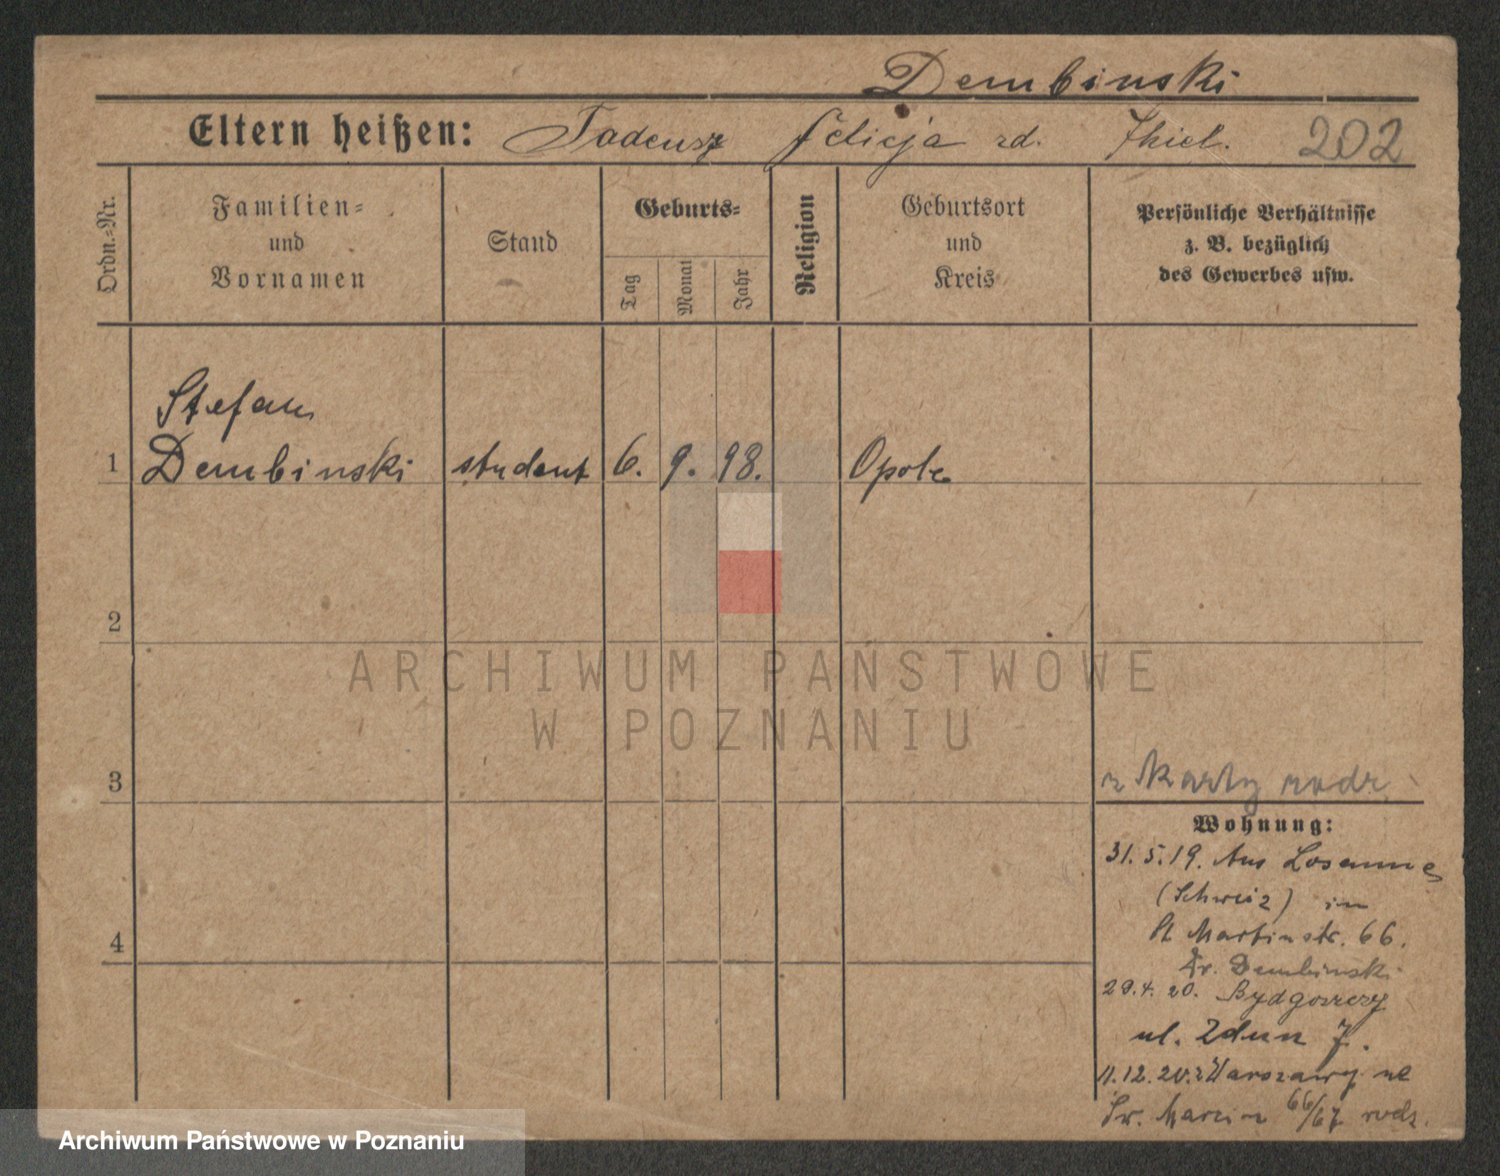 Dembinski
Eltern heißen: Tadeusz Felicja rd. Thiel. 202
Ordn.-Nr.
Familien-
und
Vornamen
Stand
Geburts-
Tag
Monat
Jahr
Religion
Geburtsort
und
Kreis
Persönliche Verhältnisse
z. B. bezüglich
des Gewerbes usw.
Stefan
1 Dembinski student 6. 9. 98. Opole
2
ARCHIWUM PAŃSTWOWE
W POZNANIU
3
z Karty rodz.
Wohnung:
31.5.19. Aus Losanne
(Schweiz) in
St Martinstr. 66.
Dr. Dembinski
4
29.4.20. Bydgoszczy
ul. Zdun 7.
11.12.20. z Warszawy na
Św. Marcin 66/67 rodz.
Archiwum Państwowe w Poznaniu